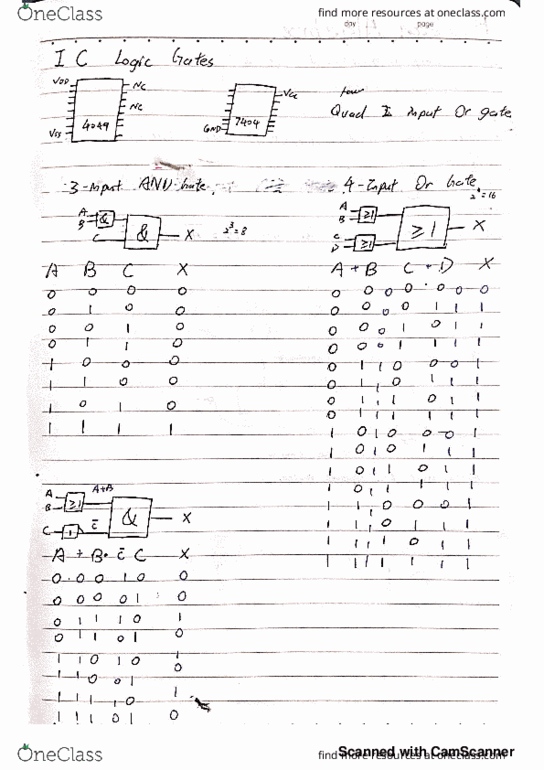 OneClass
find more resources at oneclass.com
day page
I C Logic Gates
VDD NC
NC
4049
VSS
VCC
7404
GND
four
Quad 2 input Or gate
3-Input AND Gate,
4-Input Or Gate,
2⁴=16
A
B & & X
C
2³=8
A
B ≥1
≥1 X
C
D ≥1
A B C X
0 0 0 0
0 1 0 0
0 0 1 0
0 1 1 0
1 0 0 0
1 1 0 0
1 0 1 0
1 1 1 1
A + B C + D X
0 0 0 0 0 0 0
0 0 0 0 1 1 1
0 0 0 1 0 1 1
0 0 0 1 1 1 1
0 1 1 0 0 0 1
0 1 1 0 1 1 1
0 1 1 1 0 1 1
0 1 1 1 1 1 1
1 0 1 0 0 0 1
1 0 1 0 1 1 1
1 0 1 1 0 1 1
1 0 1 1 1 1 1
1 1 1 0 0 0 1
1 1 1 0 1 1 1
1 1 1 1 0 1 1
1 1 1 1 1 1 1
A
B ≥1 A+B
& X
C 1 C̅
A + B • C̅ C X
0 0 0 1 0 0
0 0 0 0 1 0
0 1 1 1 0 1
0 1 1 0 1 0
1 1 0 1 0 1
1 1 0 0 1 0
1 1 1 1 0 1
1 1 1 0 1 0
OneClass
find more resources at oneclass.com
Scanned with CamScanner